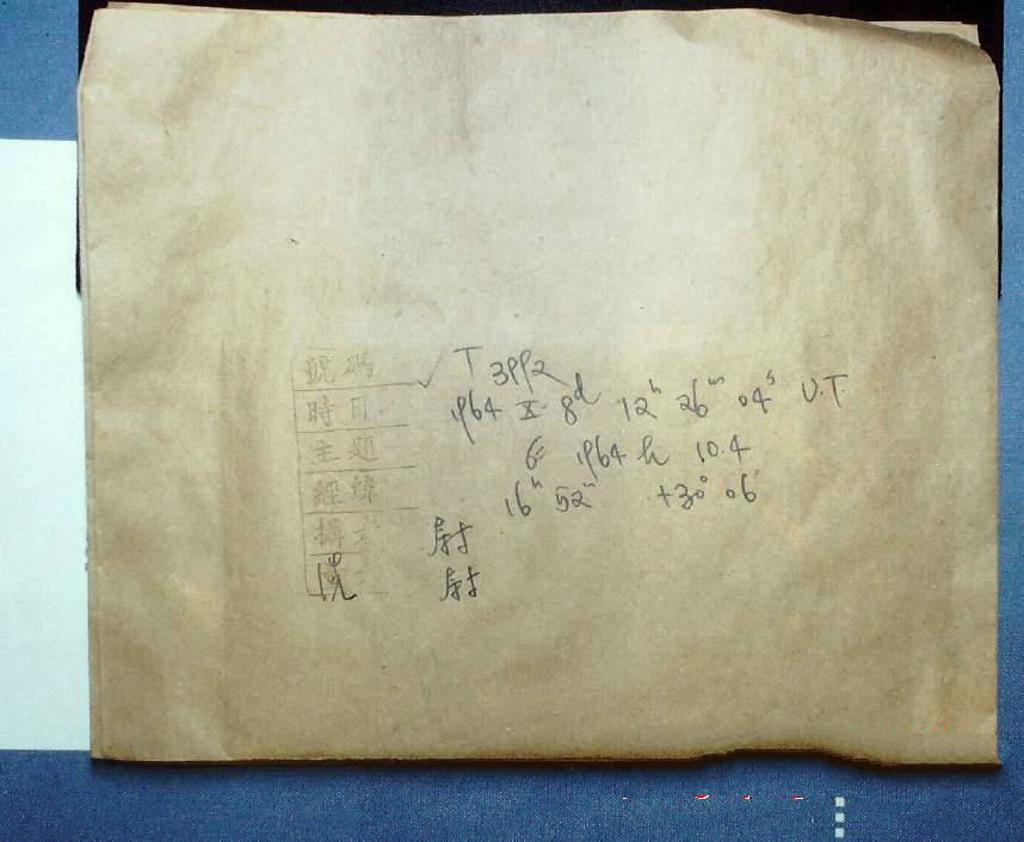 號碼 √ T 3992
時間 1964 X 8d 12h 26m 04s U.T.
主題 6= 1964 h 10.4
經緯 16h 52m +30° 06'
攝 尉
洗 尉